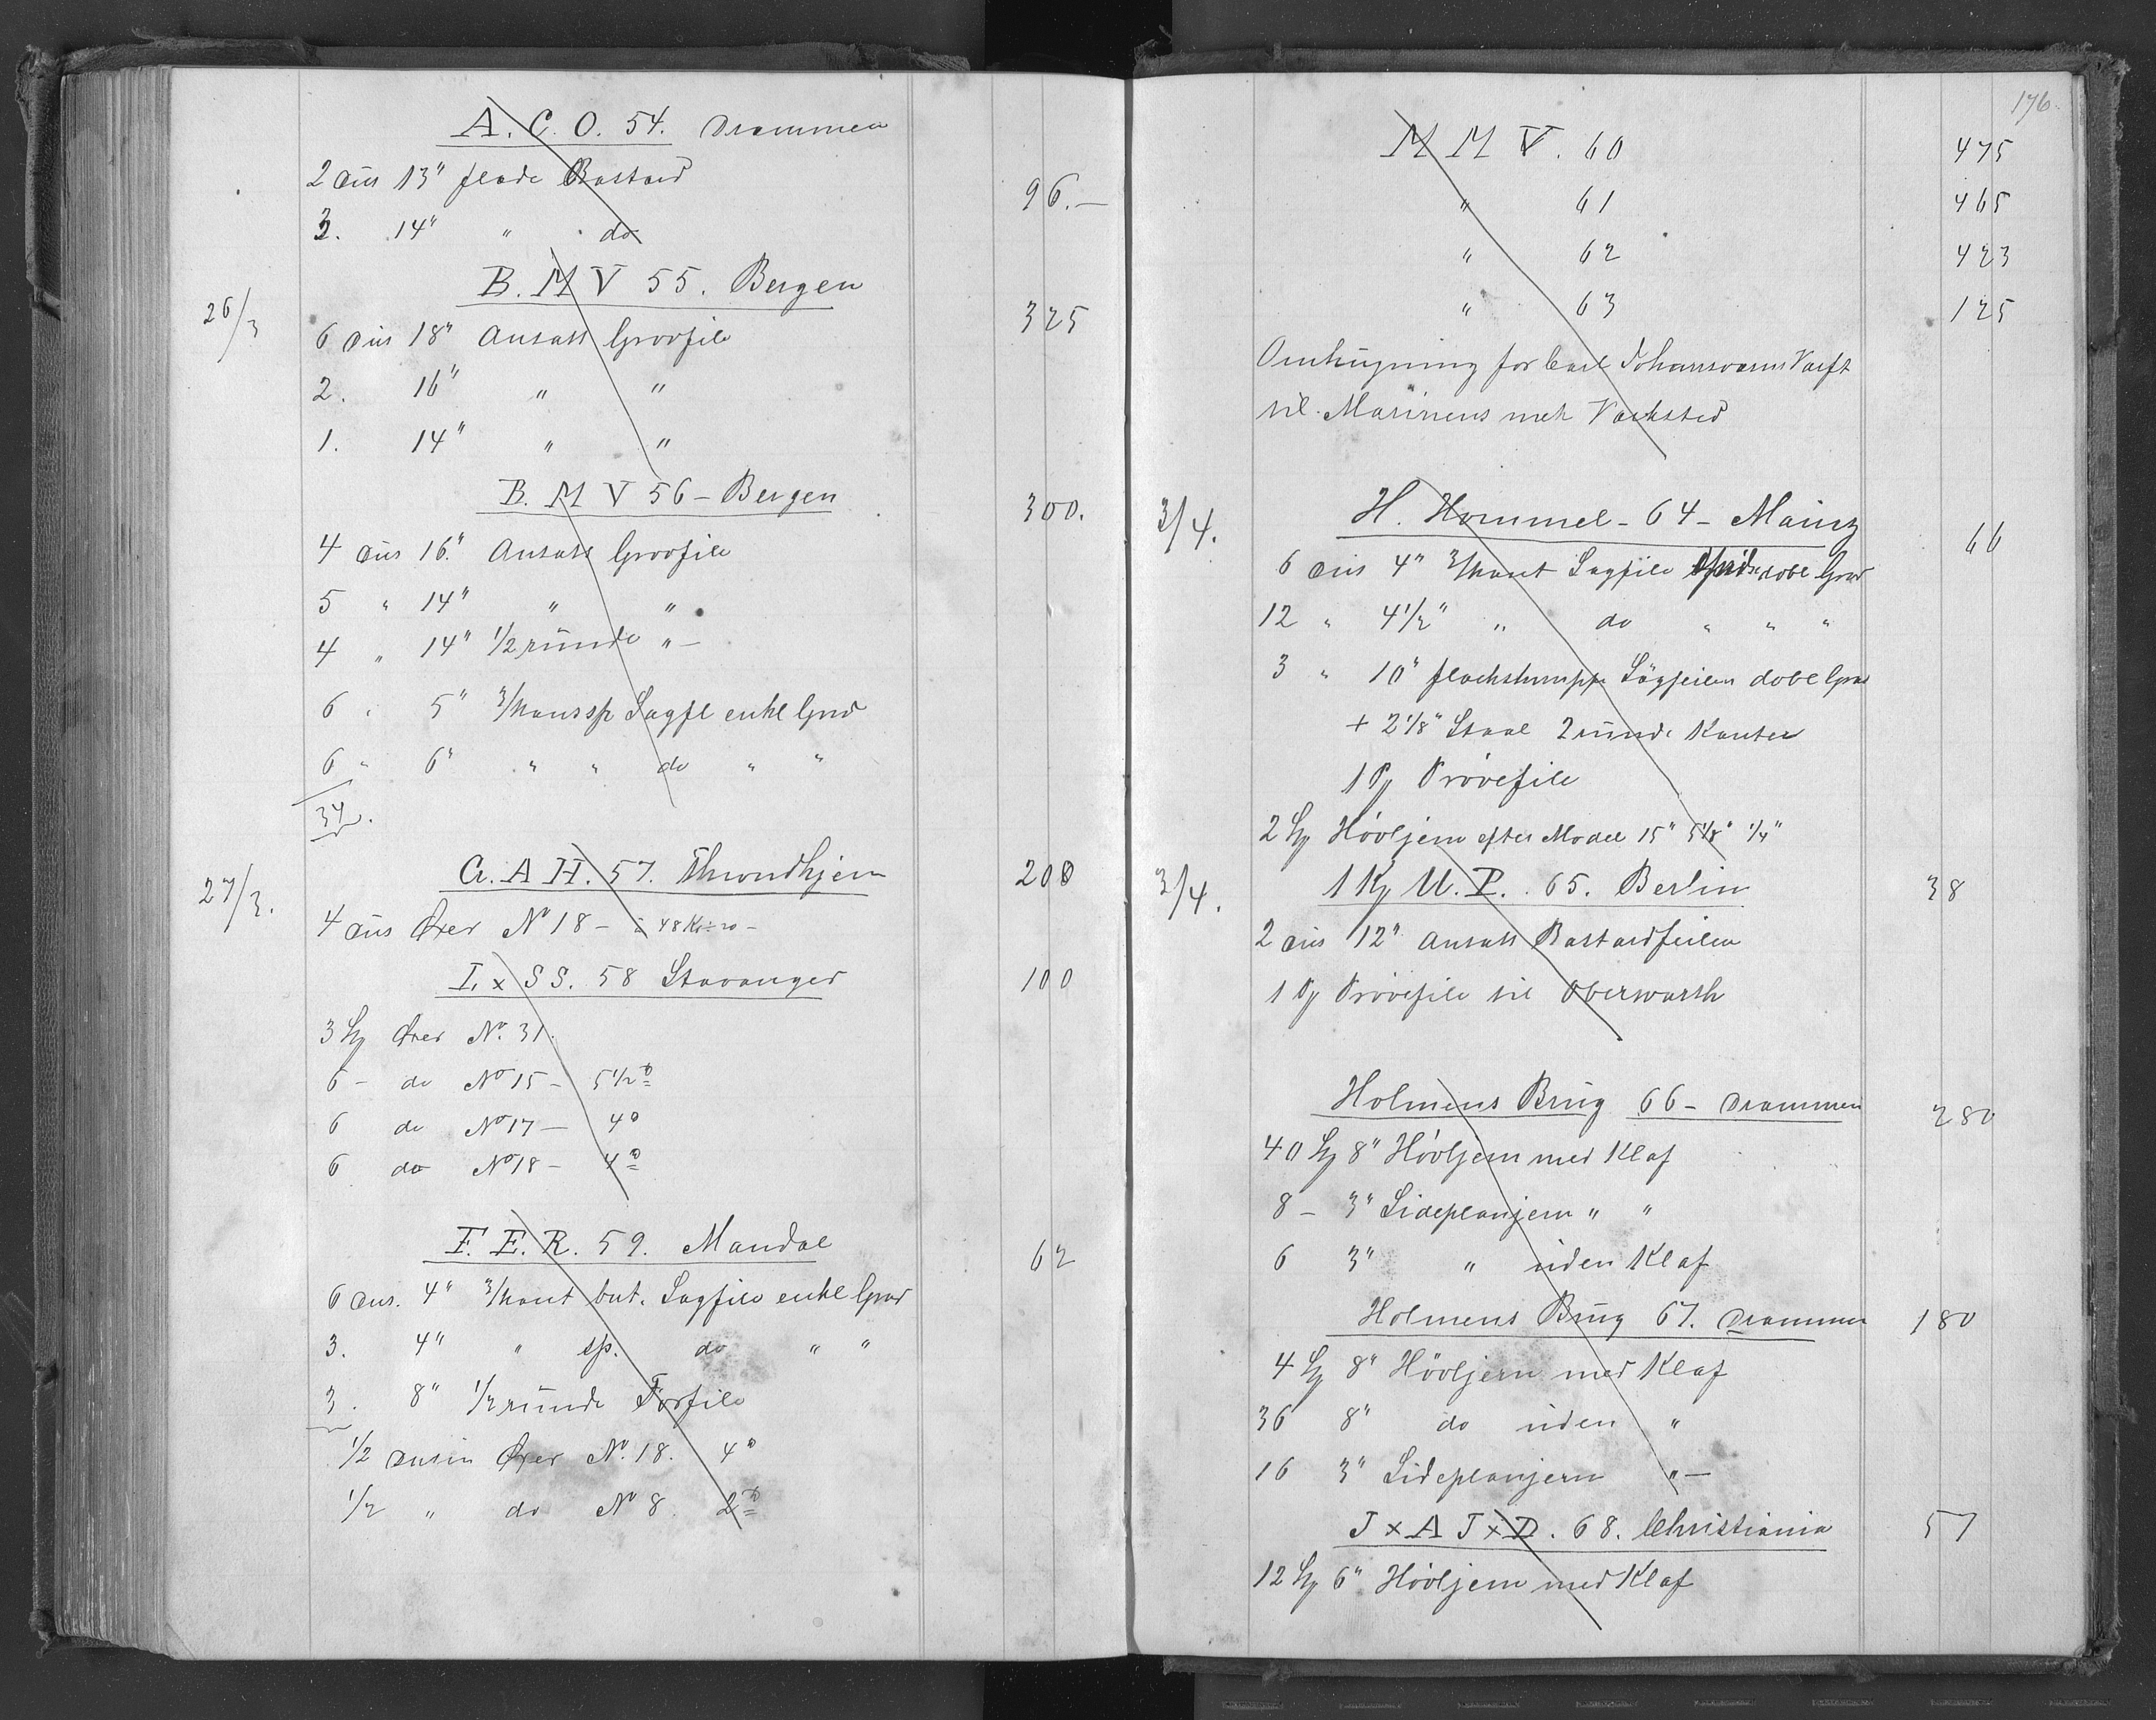 A. C. O. 54. Drammen
2 dus 13" flade Bastard 96.—
3. 14" " do
B. M V 55. Bergen
26/3 325
6 dus 18" Ansats Grovfile
2. 16" " "
1. 14" " "
B. M V 56 – Bergen 300.
4 dus 16." Ansats Grovfile
5 " 14" " "
4 " 14" 1/2 runde " –
6 " 5" 3/kant sp Sagfl enkl Grad
6 " 6" " " do " "
34.
G. A H. 57. Throndhjem 200
27/3.
4 dus Øxer No 18 – à 48 Kr ÷ 20 –
I. x S S. 58 Stavanger 100
3 St Øxer No. 31.
6 – do No 15 – 5 1/2 ℔
6 do No 17 – 4 ℔
6 do No 18 – 4 ℔
F. E. R. 59. Mandal 62
6 dus. 4" 3/kant but. Sagfile enkl Grad
3. 4" " sp. do " "
3. 8" 1/2 runde Forfile
1/2 dusin Øxer No. 18. 4 ℔
1/2 " do No 8. 2 ℔
176.
M M V. 60 475
" 61 465
" 62 423
" 63 125
Omhugning for Carl Johansværns Værft
til Marinens mek Værksted
3/4. H. Hommel – 64 – Mainz 66
6 dus 4" 3/kant Sagfile dobl Grad
12 " 4 1/2" " do " " "
3 " 10" flachstumpfe Sägfeilen dobl Grad
+ 2 1/8" Staal 2 runde Kanter
1 St Prøvefile
2 St Høvljern efter Model 15" 5 1/8" 1/4"
3/4. 1 Kg U. P. . 65. Berlin 38
2 dus 12" Ansats Bastardfeilen
1 St Prøvefile til Oberwarth
Holmens Brug 66 – Drammen 280
40 St 8" Høvljern med Klaf
8 – 3" Sideplanjern " "
6 3" " uden Klaf
Holmens Brug 67. Drammen 180
4 St 8" Høvljern med Klaf
36 8" do uden "
16 3" Sideplanjern " –
J x A J x D. 68. Christiania 57
12 St 6" Høvljern med Klaf